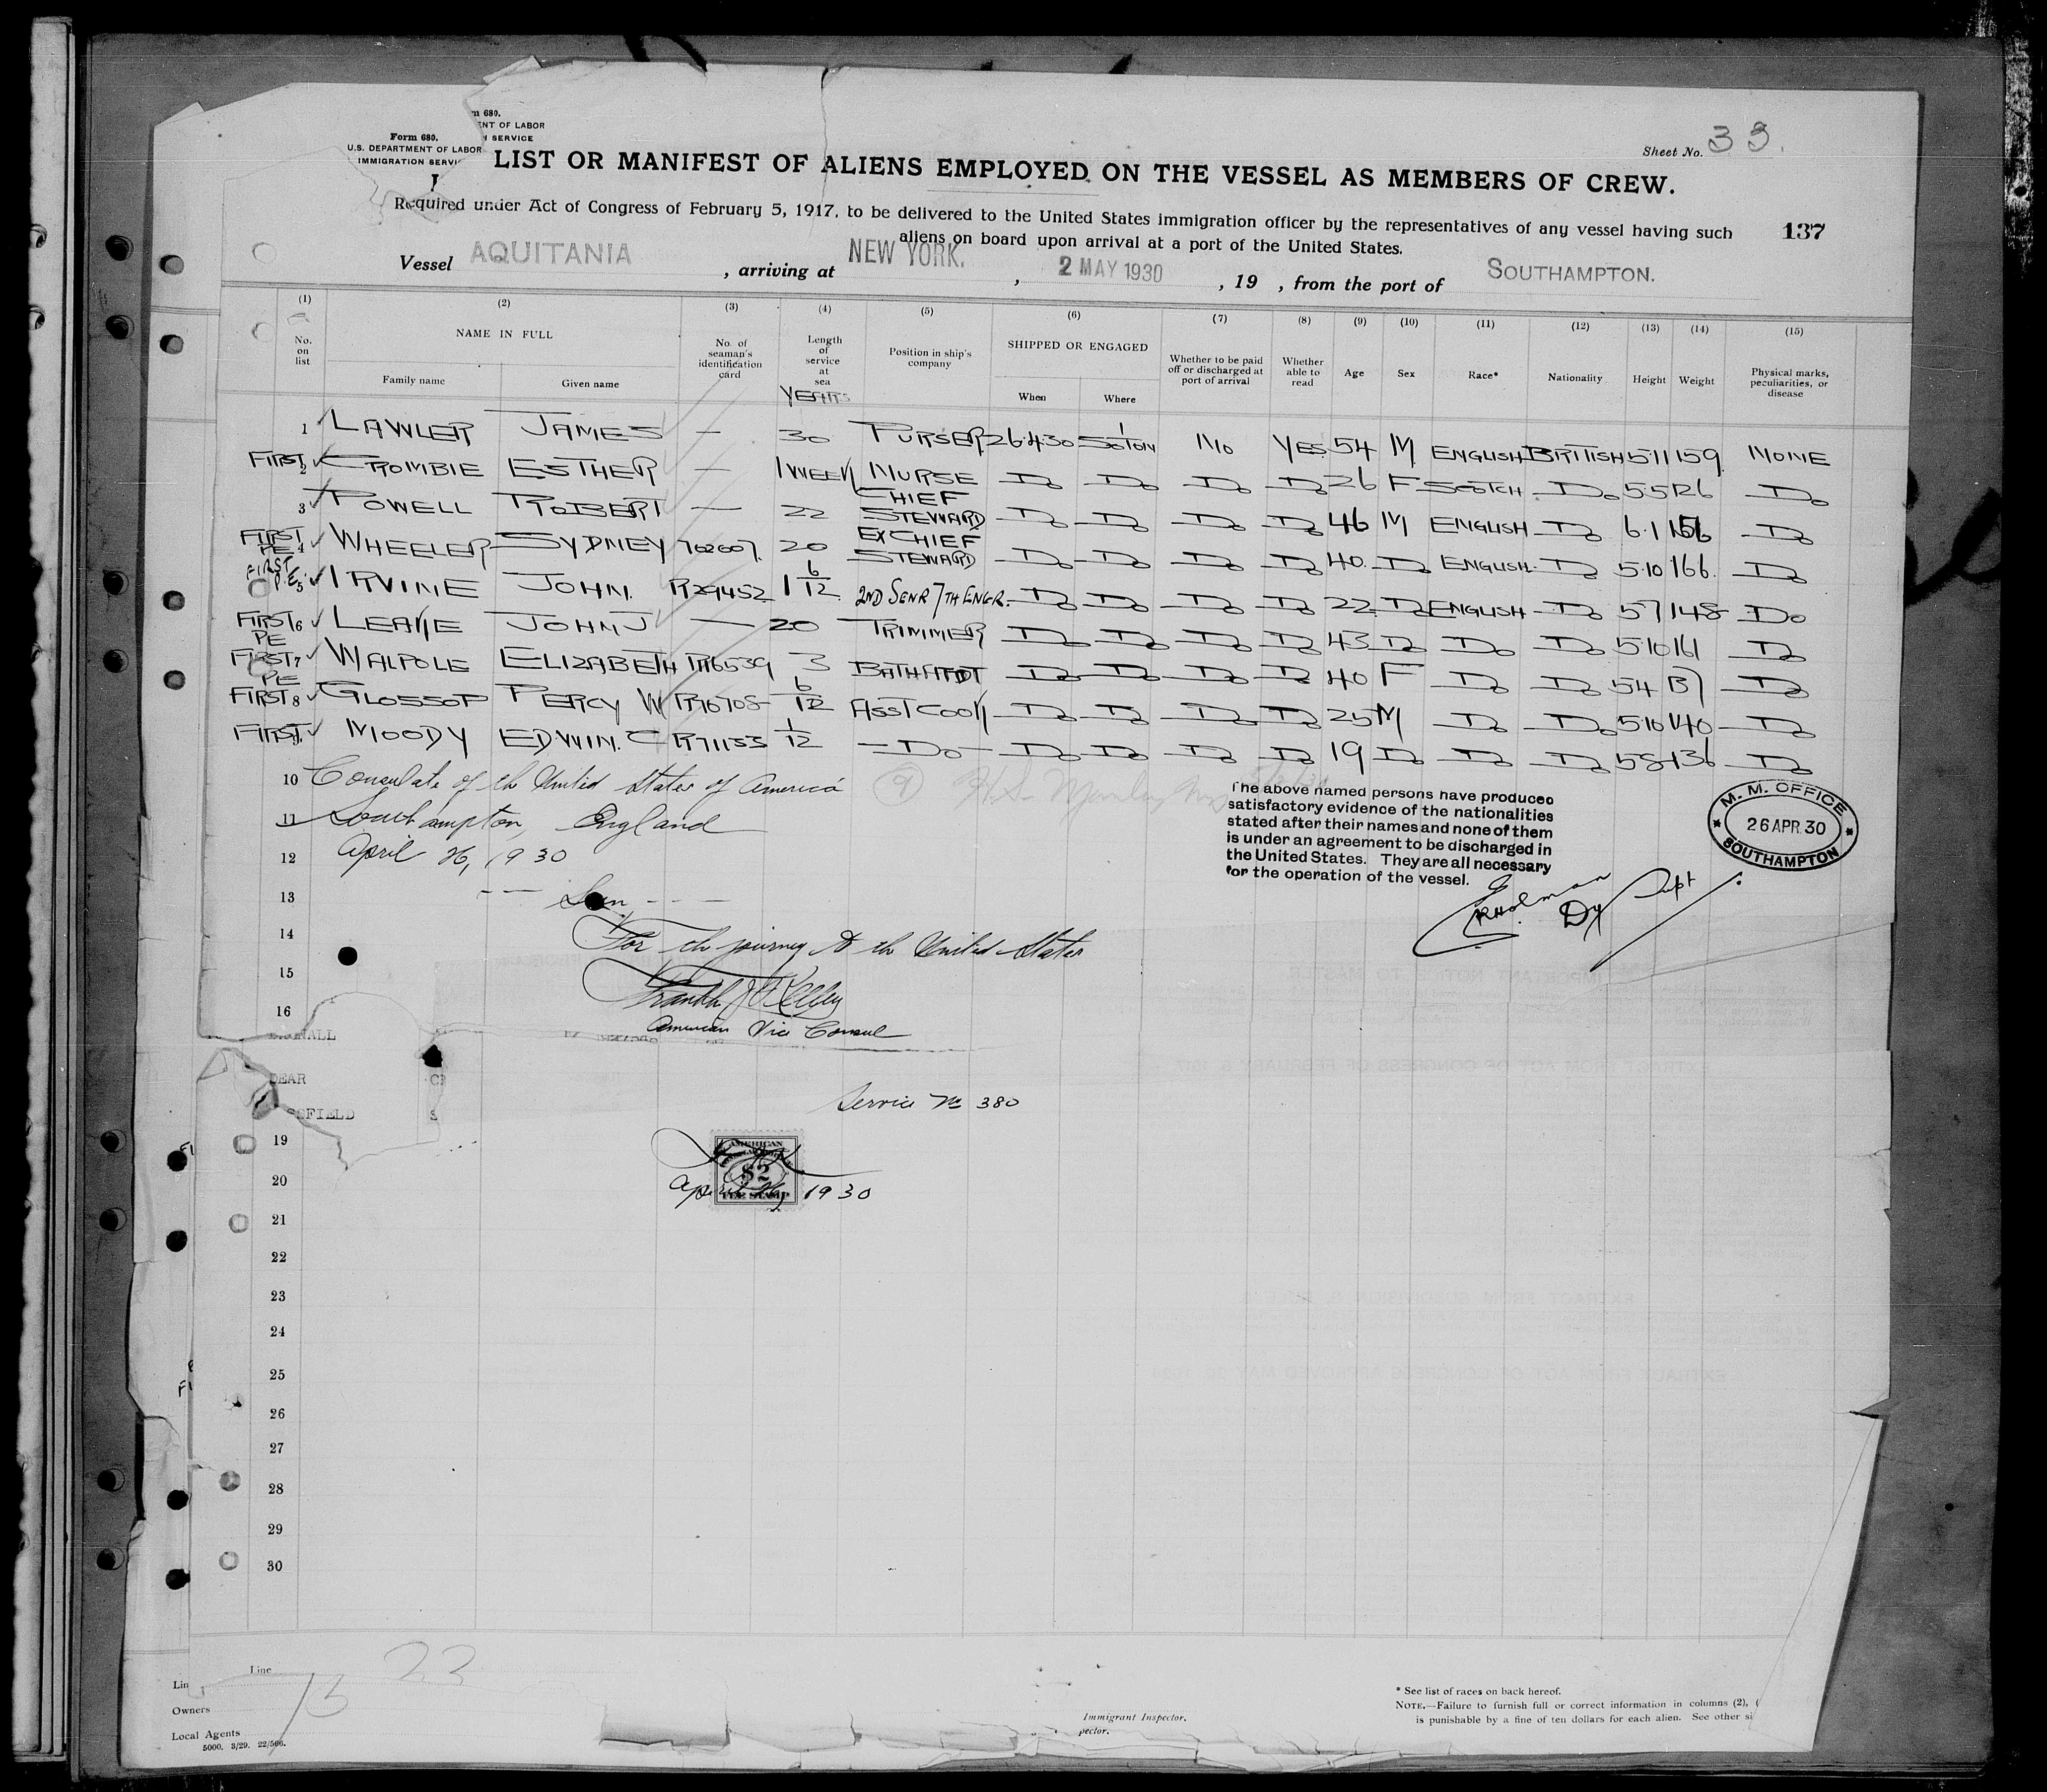 m 680.
ENT OF LABOR
N SERVICE
Form 680.
U.S. DEPARTMENT OF LABOR
IMMIGRATION SERVI
Sheet No. 33.
LIST OR MANIFEST OF ALIENS EMPLOYED ON THE VESSEL AS MEMBERS OF CREW.
Required under Act of Congress of February 5, 1917, to be delivered to the United States immigration officer by the representatives of any vessel having such
aliens on board upon arrival at a port of the United States.
137
Vessel AQUITANIA , arriving at NEW YORK. , 2 MAY 1930 , 19 , from the port of SOUTHAMPTON.
(1) (2) (3) (4) (5) (6) (7) (8) (9) (10) (11) (12) (13) (14) (15)
No. on list NAME IN FULL Family name Given name No. of seaman's identification card Length of service at sea YEARS Position in ship's company SHIPPED OR ENGAGED When Where Whether to be paid off or discharged at port of arrival Whether able to read Age Sex Race* Nationality Height Weight Physical marks, peculiarities, or disease
1 LAWLER JAMES — 30 PURSER 26.4.30 SOTON NO YES 54 M ENGLISH BRITISH 5.11 159 NONE
FIRST 2 CROMBIE ESTHER — 1 WEEK NURSE DO DO DO DO 26 F SCOTCH DO 5.5 126 DO
3 POWELL ROBERT — 22 CHIEF STEWARD DO DO DO DO 46 M ENGLISH DO 6.1 DO
FIRST PE 4 WHEELER SYDNEY 762607 20 EX CHIEF STEWARD DO DO DO DO 40 DO ENGLISH DO 5.10 166 DO
FIRST P.E. 5 IRVINE JOHN. R29452 1 6/12 2ND SENR 7TH ENGR. DO DO DO DO 22 DO ENGLISH DO 5.7 148 DO
FIRST 6 LEAKE JOHN J — 20 TRIMMER DO DO DO DO 43 DO DO DO 5.10 161 DO
PE FIRST 7 WALPOLE ELIZABETH R16539 3 BATH ATTDT DO DO DO DO 40 F DO DO 5.4 137 DO
PE FIRST 8 GLOSSOP PERCY W R76708 6/12 ASST COOK DO DO DO DO 25 M DO DO 5.10 140 DO
FIRST 9 MOODY EDWIN. C R71133 1/12 — DO — DO DO DO DO 19 DO DO DO 5.8 136 DO
10 Consulate of the United States of America
11 Southampton, England
12 April 26, 1930
The above named persons have produced
satisfactory evidence of the nationalities
stated after their names and none of them
is under an agreement to be discharged in
the United States. They are all necessary
for the operation of the vessel.
M. M. OFFICE
26 APR. 30
SOUTHAMPTON
Dy Supt
13 Seen
14 For the journey to the United States
15
16
American Vice Consul
DEAR
SFIELD
Service No 380
19
AMERICAN
$2
FEE STAMP
20 April 26, 1930
21
22
23
24
25
26
27
28
29
30
Line
Lin
Owners
Local Agents
5000. 3/29. 22/566.
Immigrant Inspector.
pector.
* See list of races on back hereof.
NOTE.—Failure to furnish full or correct information in columns (2), (
is punishable by a fine of ten dollars for each alien. See other si